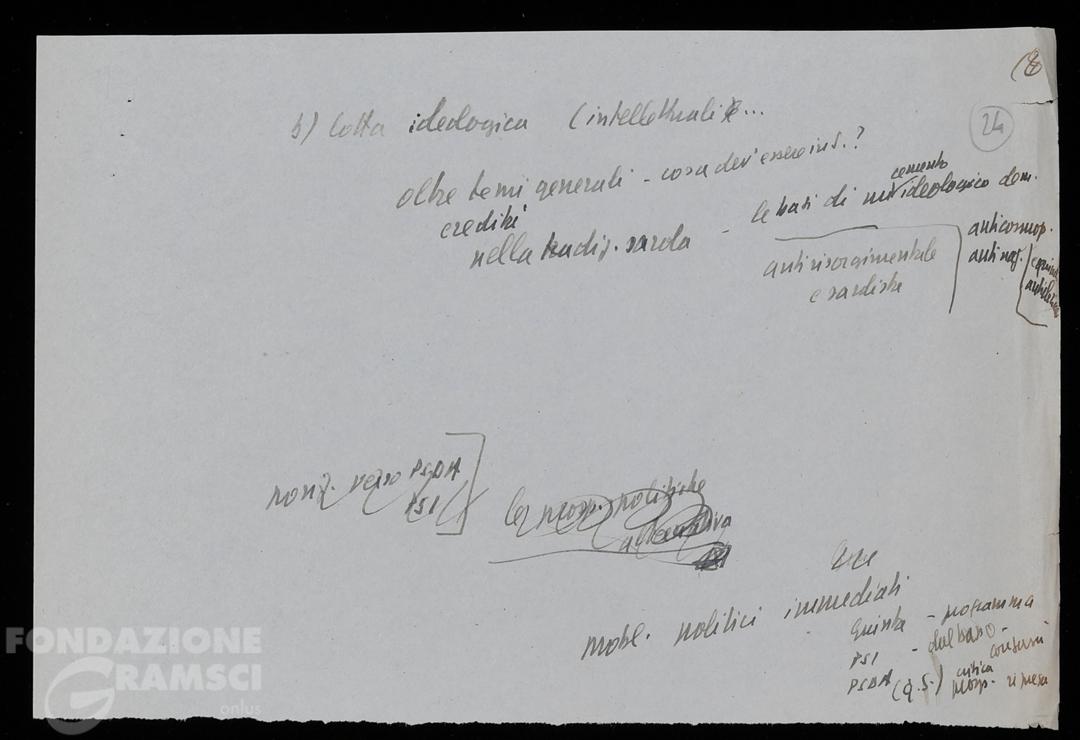 (8
24
b) lotta ideologica (intellettuali ...
oltre temi generali - cosa dev'essere ins.?
eredità
nella tradiz. sarda - le basi di un cemento ideologico dem.
antirisorgimentale
e sardiste
anticosmop.
antinaz.
posiz. verso PSDA
PSI
prosp. politiche
alternativa
probl. politici immediati
Giunta - programma
PSI - dal basso -
PSDA (q.S.) critica
prosp. ripresa
FONDAZIONE
GRAMSCI
onlus